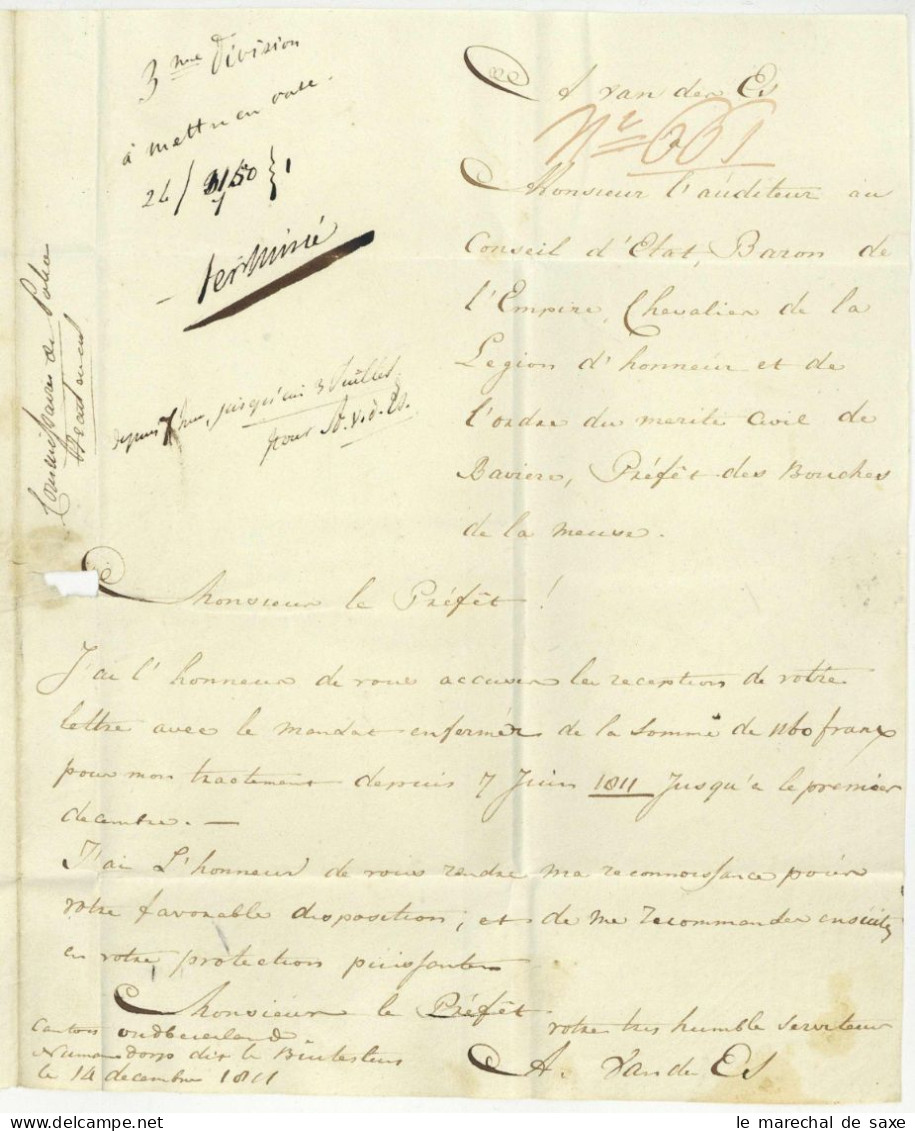 3me Division
à mettre en
24 /
terminé
jusqu'au 3 Juillet
pour A. v. d. Es.
Commissaires de Police
A van der Es
Nr 661
Monsieur l'auditeur au
Conseil d'Etat, Baron de
l'Empire, Chevalier de la
Legion d'honneur et de
l'ordre du merite Civil de
Baviere, Préfêt des Bouches
de la meuse.
Monsieur le Préfêt !
J'ai l'honneur de vous accuser la reception de votre
lettre avec le mandat enfermér de la Somme de 1160 franx
pour mon tractement depuis 7 Juin 1811 Jusqu'a le premier
decembre. —
J'ai L'honneur de vous rendre ma reconnoissance pour
votre favorable disposition; et de me recommander ensuite
en votre protection puissante
Monsieur le Préfêt
votre tres humble Serviteur
A. van der Es
Canton oudbeierland
Numansdorp
le 14 decembre 1811
le marechal de saxe